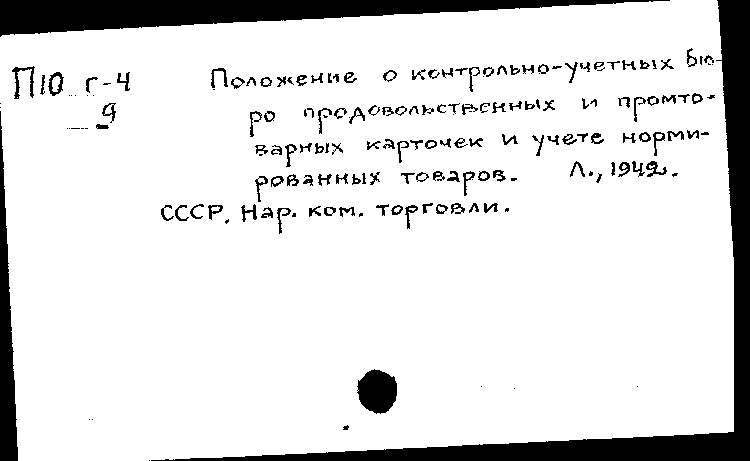 П10 г-4
9
Положение о контрольно-учетных бю-
ро продовольственных и промто-
варных карточек и учете норми-
рованных товаров. Л., 1942.
СССР. Нар. ком. торговли.